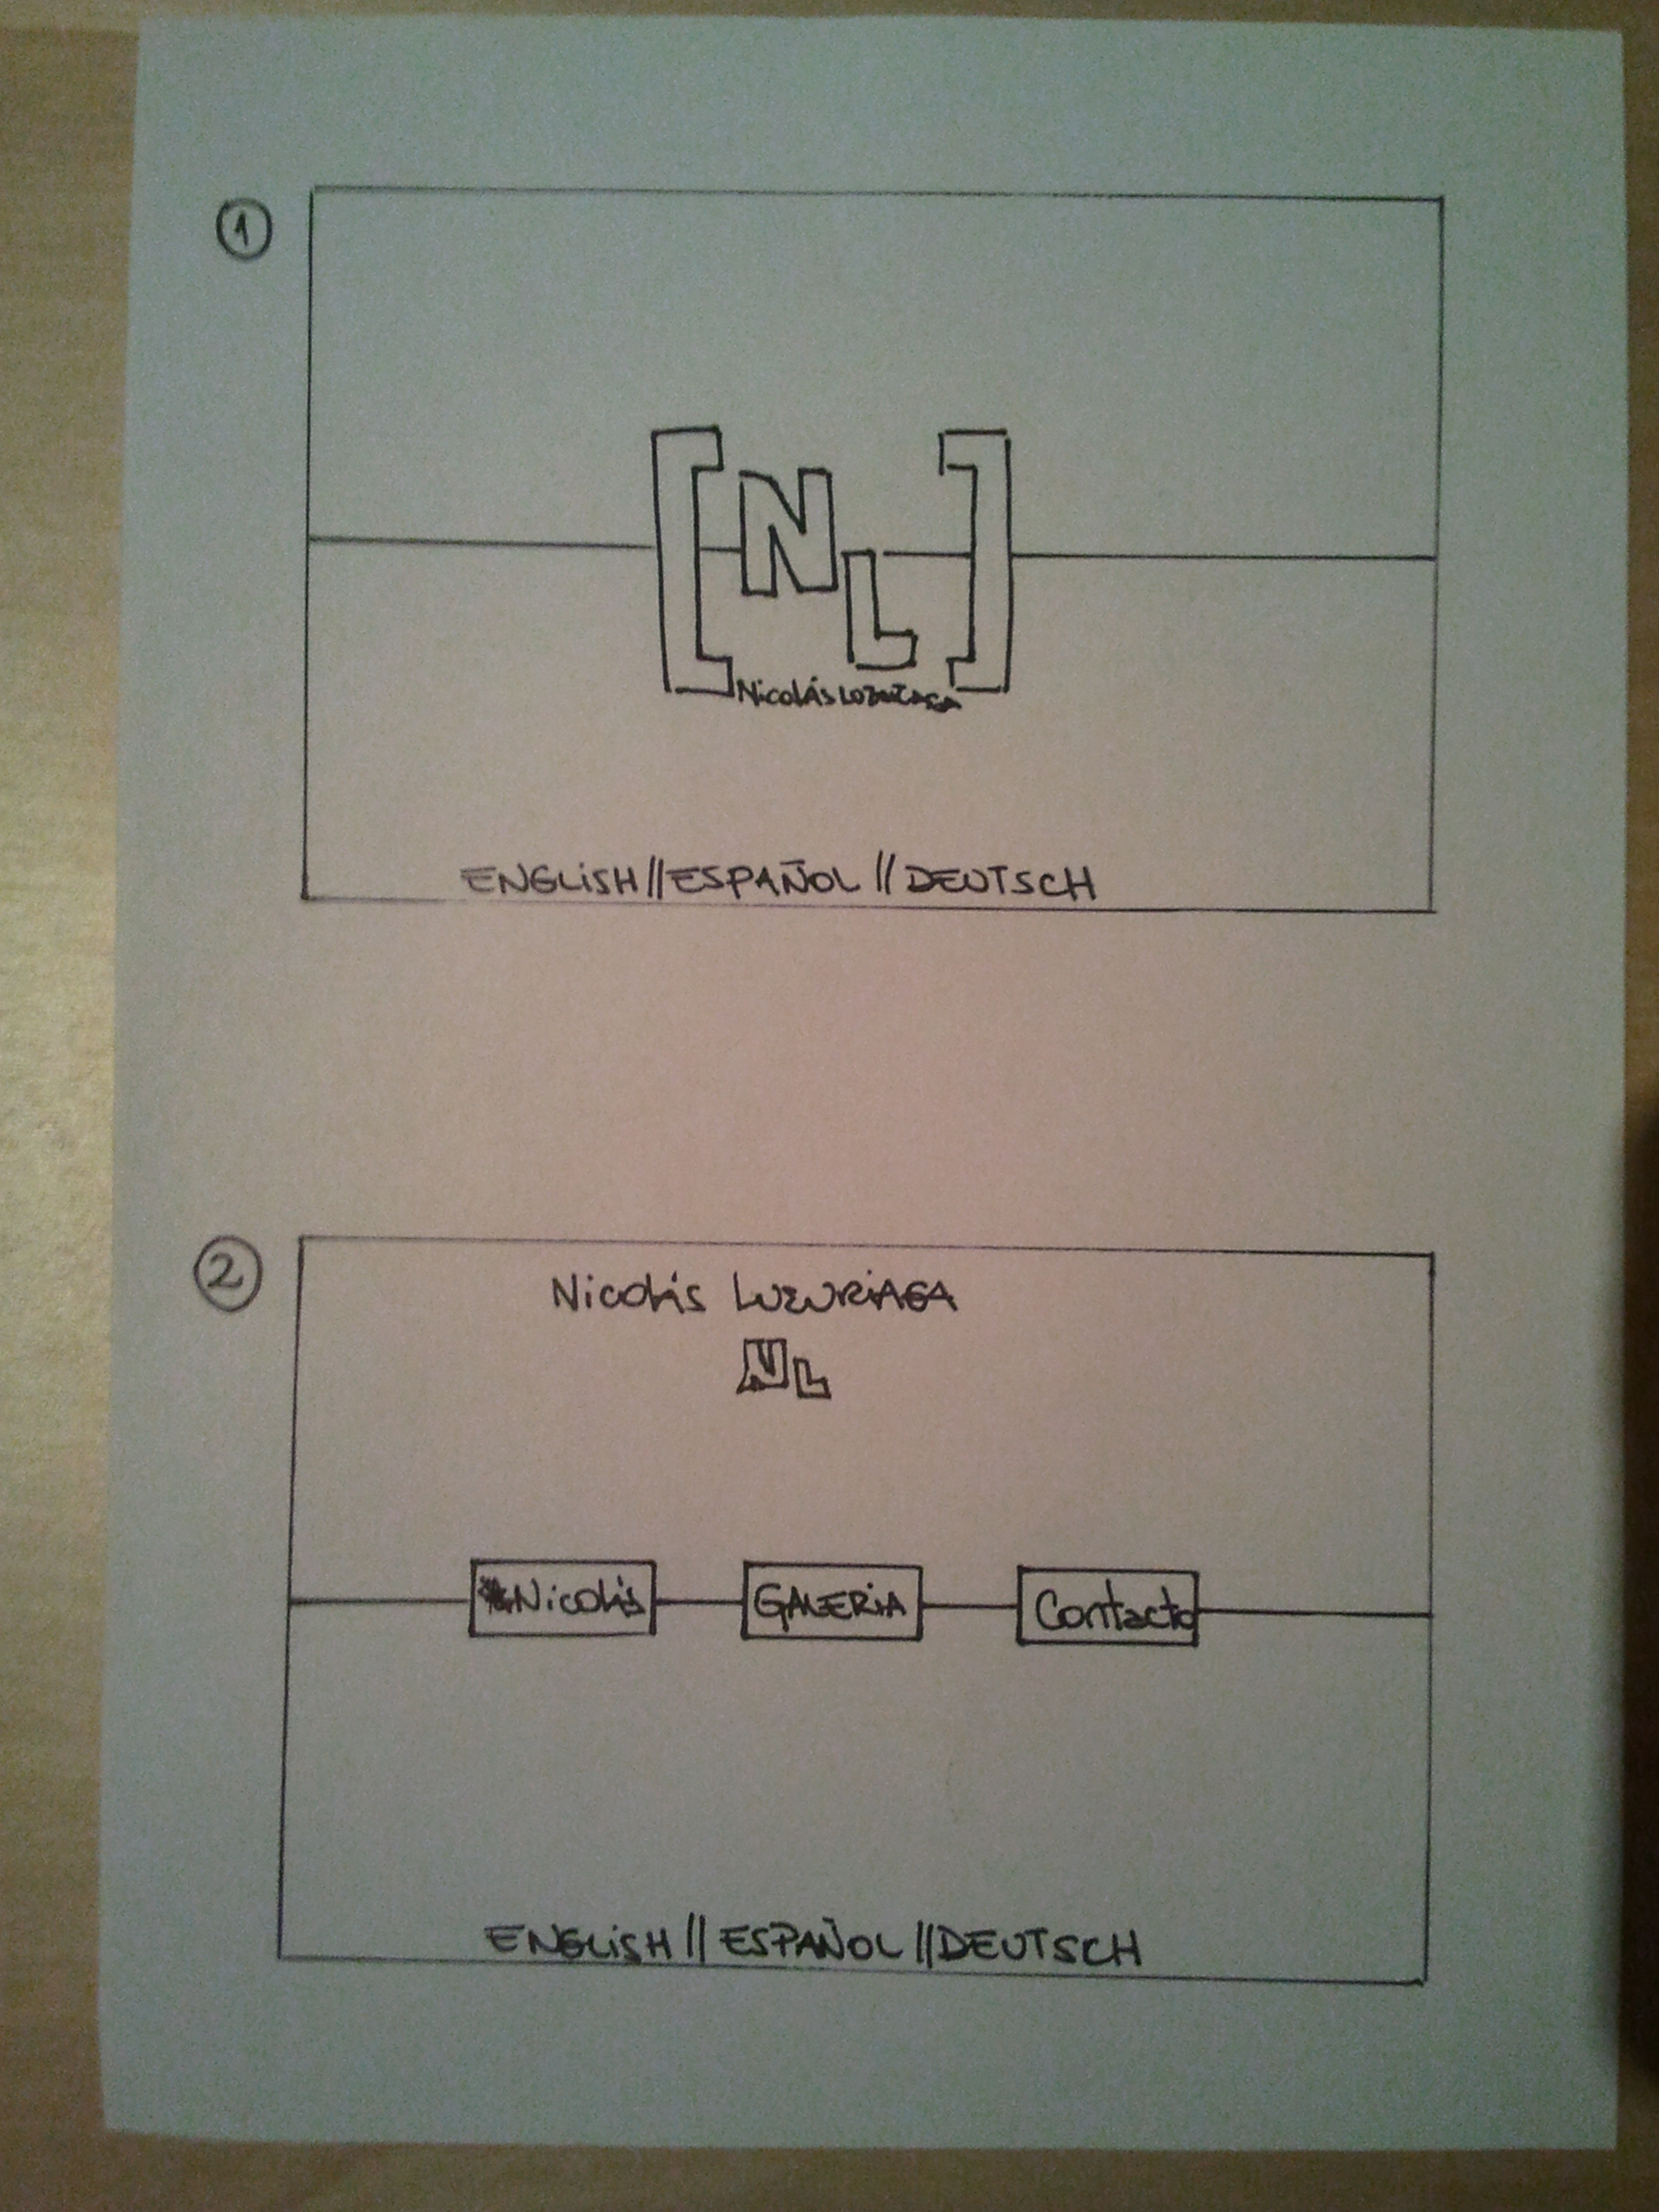 1
[NL]
Nicolás Luzuriaga
ENGLiSH//ESPAÑOL//DEUTSCH
2
Nicolás LuzuRiAGA
NL
Nicolás
GALERiA
Contacto
ENGLiSH//ESPAÑOL//DEUTSCH